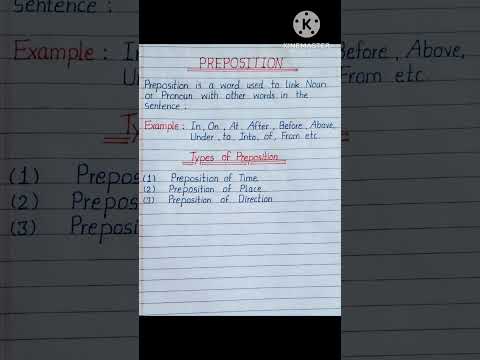 KINEMASTER
PREPOSITION
Preposition is a word used to link Noun
or Pronoun with other words in the
Sentence :
Example : In, On, At, After, Before, Above,
Under, to, Into, of, From etc.
Types of Preposition
(1) Preposition of Time
(2) Preposition of Place
(3) Preposition of Direction
Sentence :
Example : In
Under
Before, Above,
From etc.
(1) Prepos
(2) Preposi
(3) Preposi